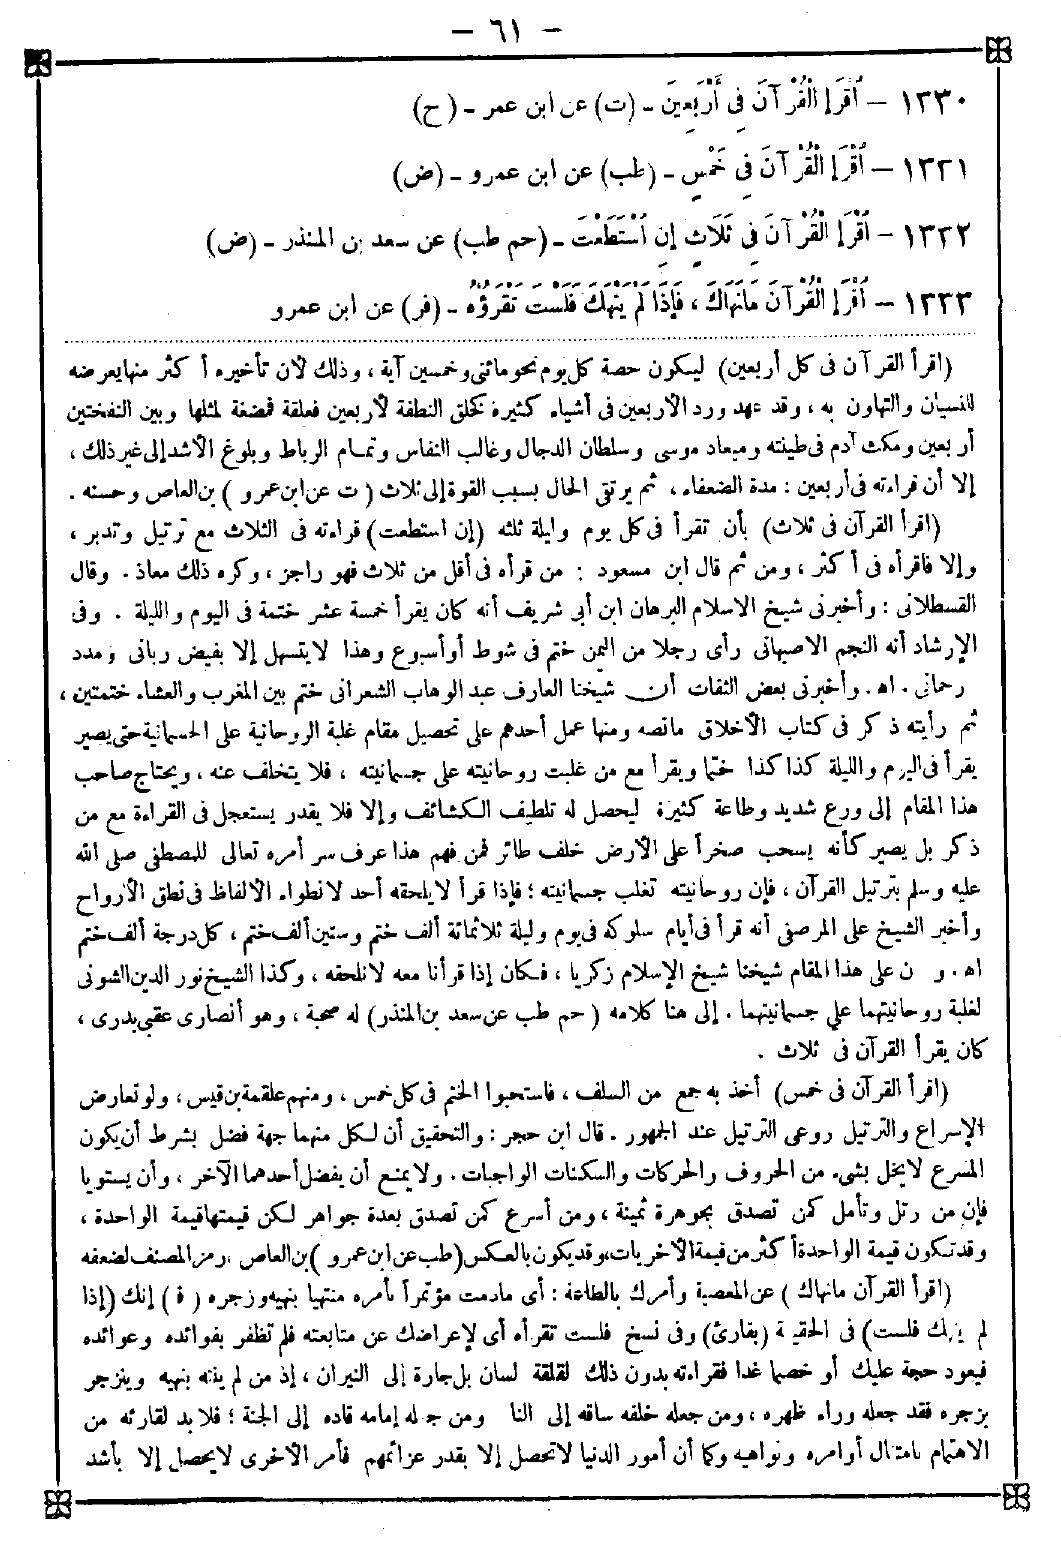 – ٦١ –
١٣٣٠ – اقْرَإِ الْقُرْآنَ فِي أَرْبَعِينَ – (ت) عن ابن عمر – (ح)
١٣٣١ – اقْرَإِ الْقُرْآنَ فِي خَمْسٍ – (طب) عن ابن عمرو – (ض)
١٣٣٢ – اقْرَإِ الْقُرْآنَ فِي ثَلَاثٍ إِنِ اسْتَطَعْتَ – (حم طب) عن سعد بن المنذر – (ض)
١٣٣٣ – اقْرَإِ الْقُرْآنَ مَانَهَاكَ ، فَإِذَا لَمْ يَنْهَكَ فَلَسْتَ تَقْرَؤُهُ – (فر) عن ابن عمرو
(اقرأ القرآن فى كل أربعين) ليكون حصة كل يوم نحو مائتى وخمسين آية ، وذلك لأن تأخيره أكثر منها يعرضه
للنسيان والتهاون به ، وقد عهد ورد الأربعين فى أشياء كثيرة كخلق النطفة لأربعين فعلقة فمضغة لمثلها وبين النفختين
أربعين ومكث آدم فى طينته وميعاد موسى وسلطان الدجال وغالب النفاس وتمام الرباط وبلوغ الأشد إلى غير ذلك ،
إلا أن قراءته فى أربعين : مدة الضعفاء ، ثم يرتقى الحال بسبب القوة إلى ثلاث (ت عن ابن عمرو) بن العاص وحسنه .
(اقرأ القرآن فى ثلاث) بأن تقرأ فى كل يوم وليلة ثلثه (إن استطعت) قراءته فى الثلاث مع ترتيل وتدبر ،
وإلا فاقرأه فى أكثر ، ومن ثم قال ابن مسعود : من قرأه فى أقل من ثلاث فهو راجز ، وكره ذلك معاذ . وقال
القسطلانى : وأخبرنى شيخ الاسلام البرهان ابن أبى شريف أنه كان يقرأ خمسة عشر ختمة فى اليوم والليلة . وفى
الإرشاد أنه النجم الاصبهانى رأى رجلا من اليمن ختم فى شوط أو أسبوع وهذا لا يتسهل إلا بفيض ربانى ومدد
رحمانى . اه . وأخبرنى بعض الثقات أن شيخنا العارف عبد الوهاب الشعرانى ختم بين المغرب والعشاء ختمتين ،
ثم رأيته ذكر فى كتاب الأخلاق مانصه ومنها عمل أحدهم على تحصيل مقام غلبة الروحانية على الجسمانية حتى يصير
يقرأ فى اليوم والليلة كذا كذا ختما ويقرأ مع من غلبت روحانيته على جسمانيته ، فلا يتخلف عنه ، ويحتاج صاحب
هذا المقام إلى ورع شديد وطاعة كثيرة ليحصل له تلطيف الكشائف وإلا فلا يقدر يستعجل فى القراءة مع من
ذكر بل يصير كأنه يسحب صخراً على الأرض خلف طائر فمن فهم هذا عرف سر أمره تعالى للمصطفى صلى الله
عليه وسلم بترتيل القرآن ، فإن روحانيته تغلب جسمانيته ؛ فإذا قرأ لا يلحقه أحد لانطواء الألفاظ فى نطق الأرواح
وأخبر الشيخ على المرصفى أنه قرأ فى أيام سلوكه فى يوم وليلة ثلاثمائة ألف ختم وستين ألف ختم ، كل درجة ألف ختم
اه . و ن على هذا المقام شيخنا شيخ الإسلام زكريا ، فكان إذا قرأنا معه لا نلحقه ، وكذا الشيخ نور الدين الشونى
لغلبة روحانيتهما على جسمانيتهما . إلى هنا كلامه (حم طب عن سعد بن المنذر) له صحبة ، وهو أنصارى عقبى بدرى ،
كان يقرأ القرآن فى ثلاث .
(اقرأ القرآن فى خمس) أخذ به جمع من السلف ، فاستحبوا الختم فى كل خمس ، ومنهم علقمة بن قيس ، ولو تعارض
الإسراع والترتيل روعى الترتيل عند الجمهور . قال ابن حجر : والتحقيق أن لكل منهما جهة فضل بشرط أن يكون
المسرع لا يخل بشىء من الحروف والحركات والسكنات الواجبات . ولا يمنع أن يفضل أحدهما الآخر ، وأن يستويا
فإن من رتل وتأمل كمن تصدق بجوهرة ثمينة ، ومن أسرع كمن تصدق بعدة جواهر لكن قيمتها قيمة الواحدة ،
وقد تكون قيمة الواحدة أكثر من قيمة الأخريات ، وقد يكون بالعكس (طب عن ابن عمرو) بن العاص ، رمز المصنف لضعفه
(اقرأ القرآن مانهاك) عن المعصية وأمرك بالطاعة : أى مادمت مؤتمراً بأمره منتهيا بنهيه وزجره (ف) إنك (إذا
لم ينهك فلست) فى الحقيقة (بقارئ) وفى نسخ فلست تقرأه أى لإعراضك عن متابعته فلم تظفر بفوائده وعوائده
فيعود حجة عليك أو خصما غدا فقراءته بدون ذلك لقلقة لسان بل جارة إلى النيران ، إذ من لم ينته بنهيه وينزجر
بزجره فقد جعله وراء ظهره ، ومن جعله خلفه ساقه إلى النا ومن جعله إمامه قاده إلى الجنة ؛ فلا بد لقارئه من
الاهتمام بامتثال أوامره ونواهيه وكما أن أمور الدنيا لا تحصل إلا بقدر عزائمهم فأمر الأخرى لا يحصل إلا بأشد